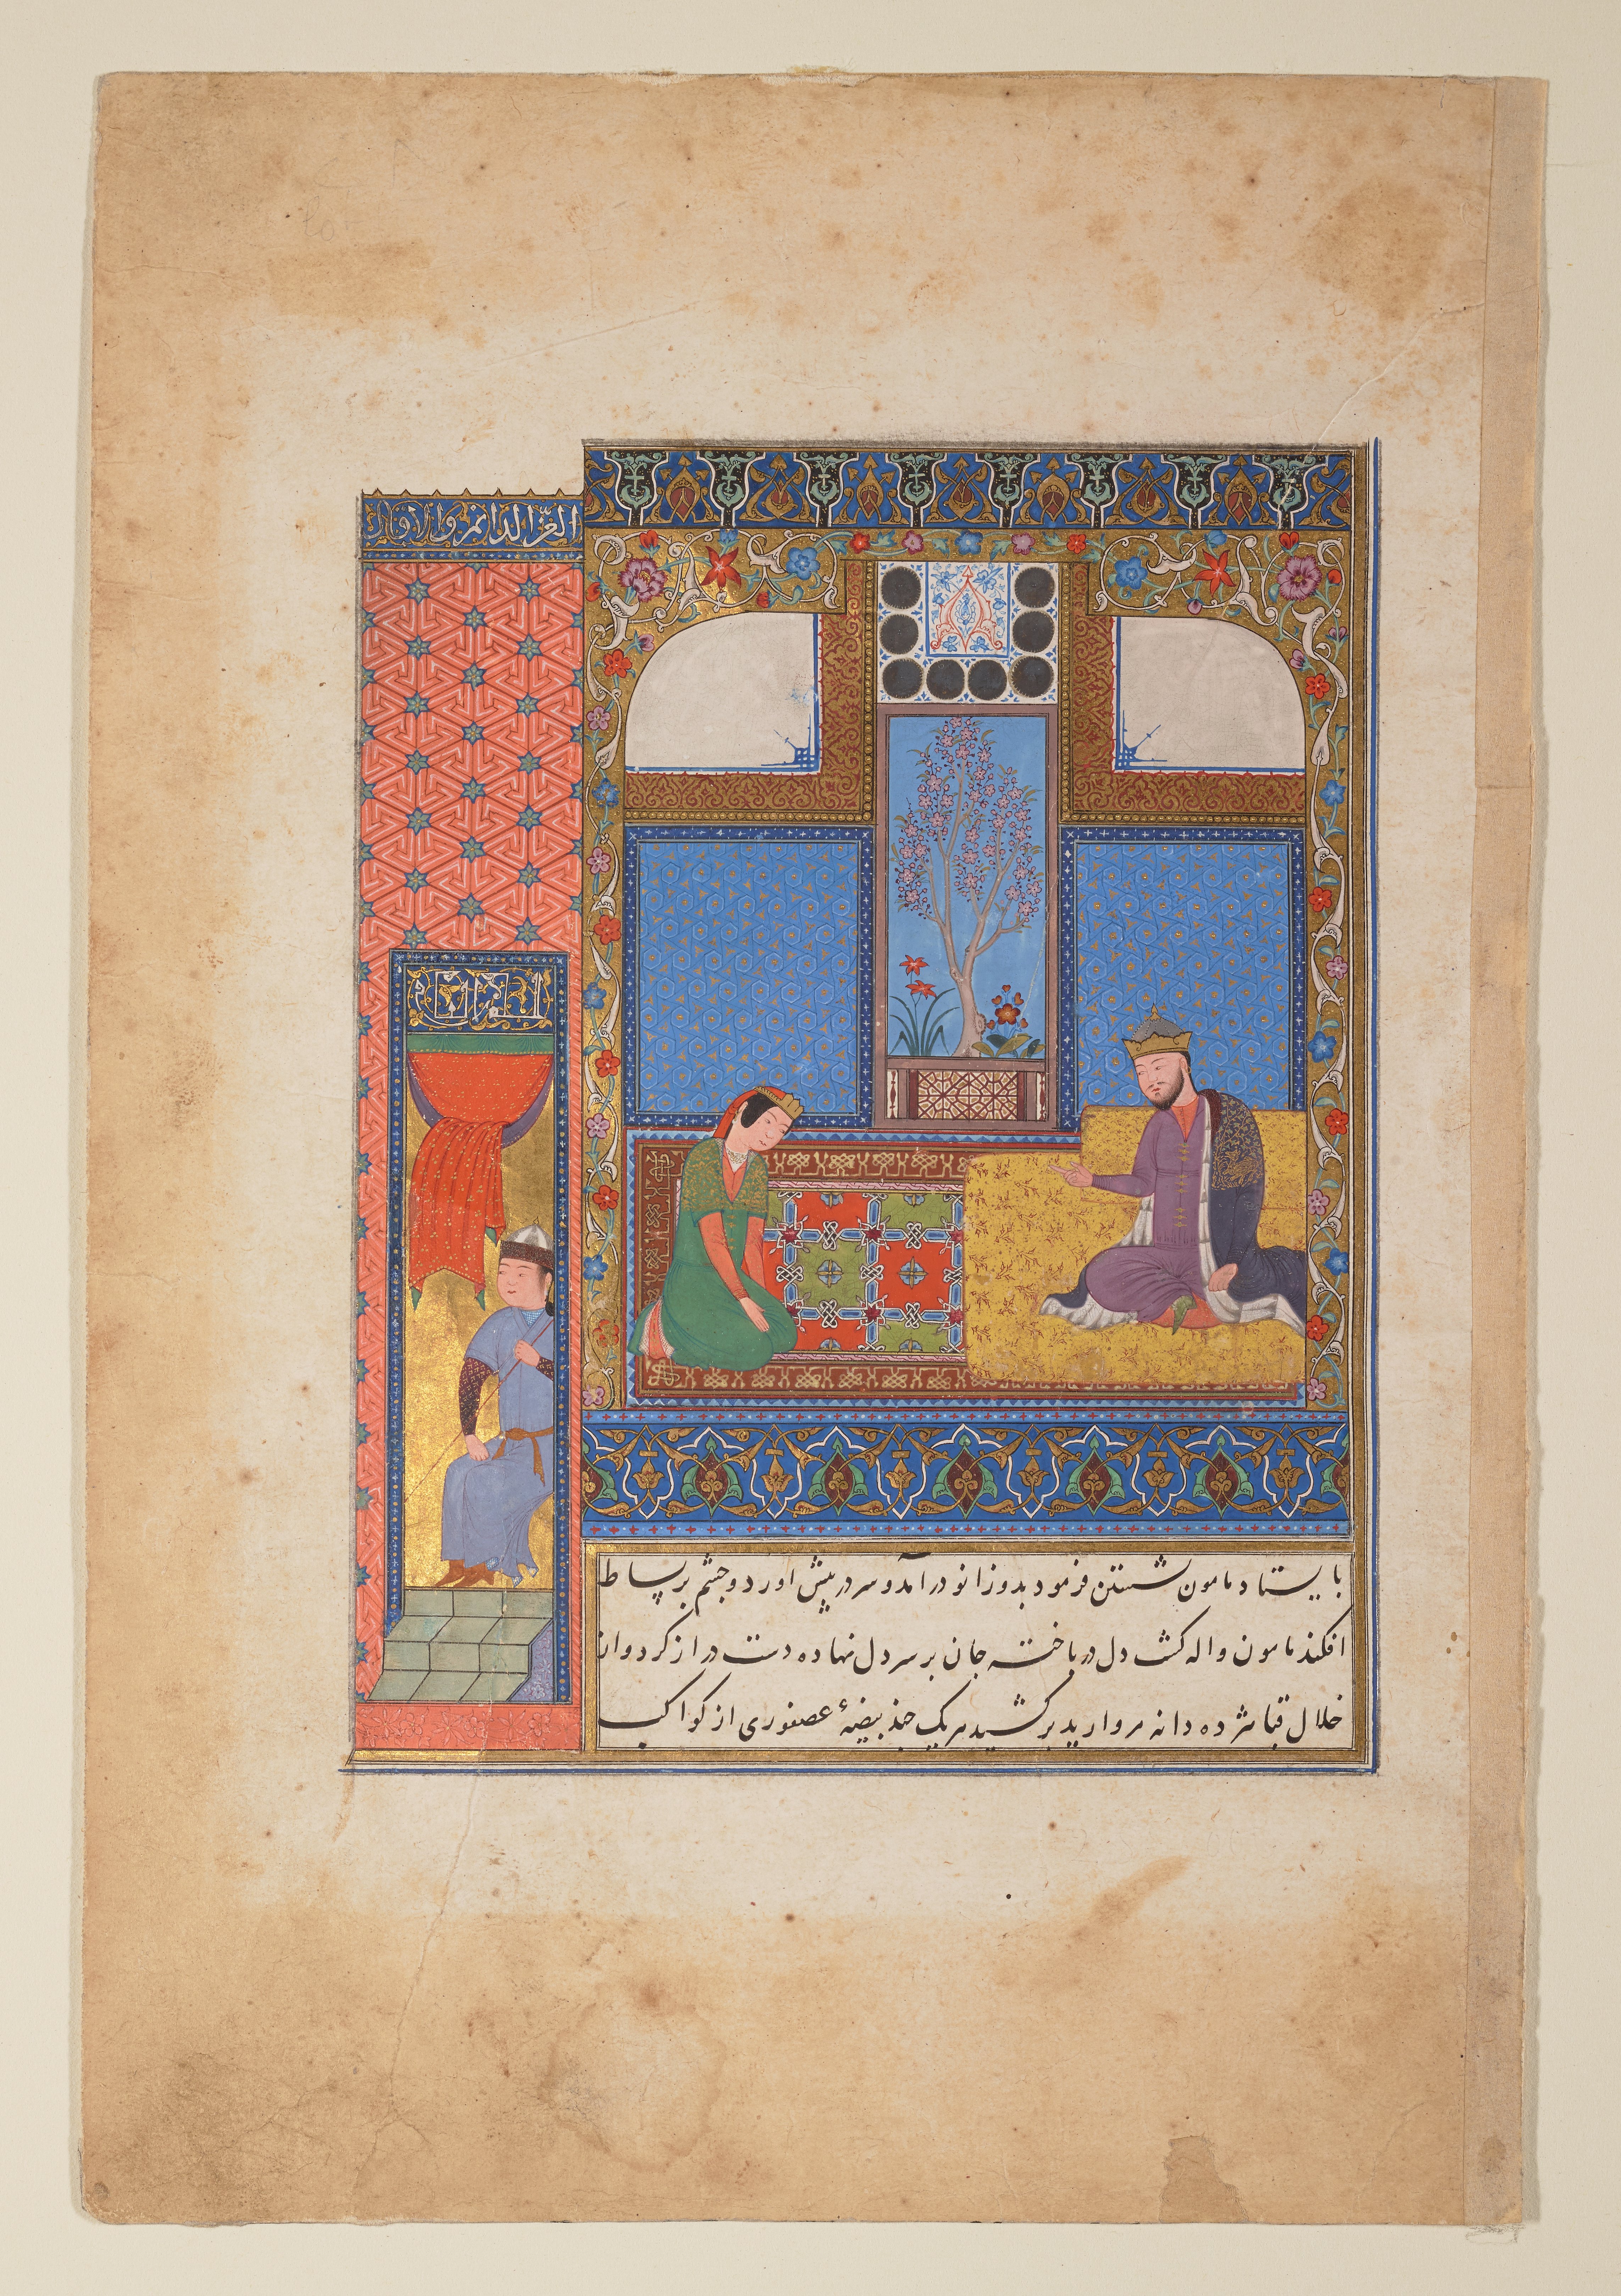 العز الدائم والاقبال
بایستاد مامون نشستن فرمود بدو زانو در آمد و سر در پیش اورد و چشم بر بساط
افکند مامون واله کشت دل در باخته جان بر سر دل نهاده دست دراز کرد و از
خلال قبا شژده دانه مروارید بر کشید هریک چند بیضهٔ عصفوری از کواکب